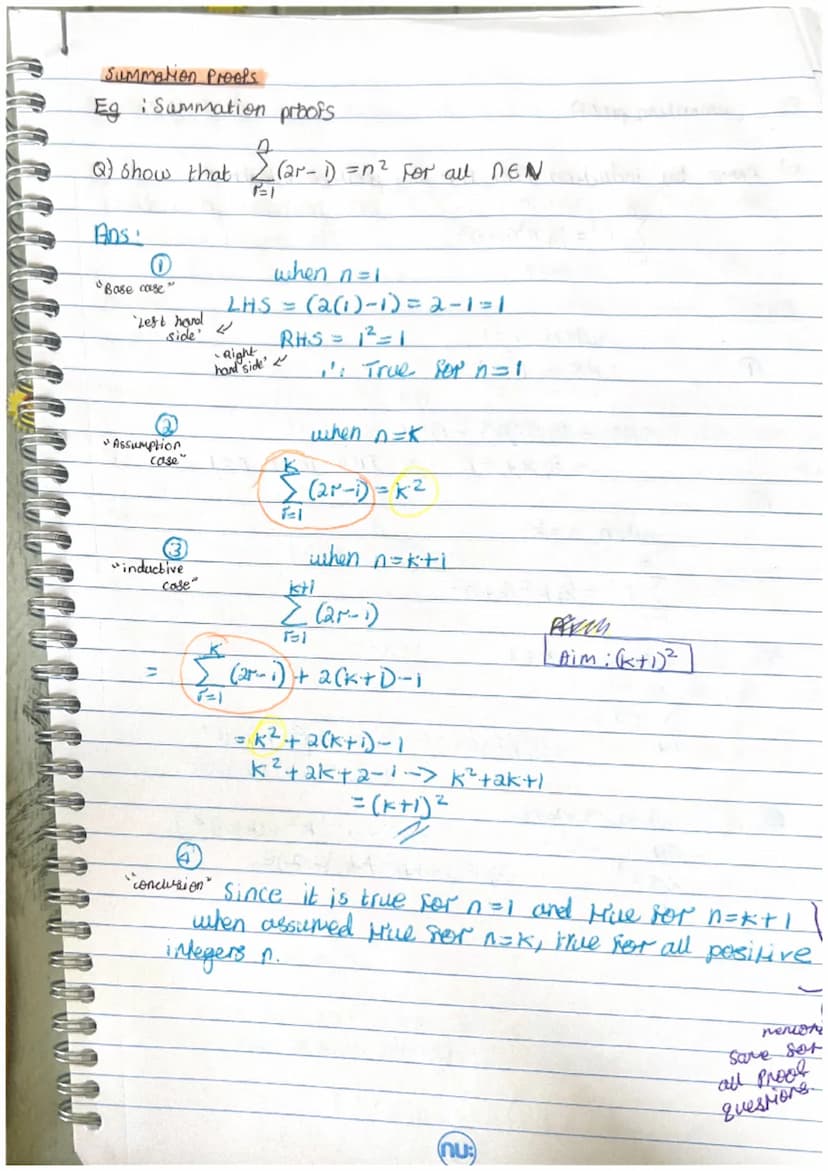 Summation Proofs
Eg : Summation proofs
Q) Show that \sum_{r=1}^{n} (2r-1) = n² for all n∈N
Ans:
① when n=1
"Base case"
LHS = (2(1)-1) = 2-1 = 1
'Left hand side' ↙
RHS = 1² = 1
'Right hand side' ↙
∴ True for n=1
② when n=k
"Assumption case"
\sum_{r=1}^{k} (2r-1) = k²
③ when n=k+1
"inductive case"
\sum_{r=1}^{k+1} (2r-1)
Aim : (k+1)²
= \sum_{r=1}^{k} (2r-1) + 2(k+1)-1
= k² + 2(k+1)-1
k² + 2k+2-1 -> k²+2k+1
= (k+1)²
④
"conclusion" Since it is true for n=1 and true for n=k+1
when assumed true for n=k, true for all positive
integers n.
same for
all proof
questions.
nu: